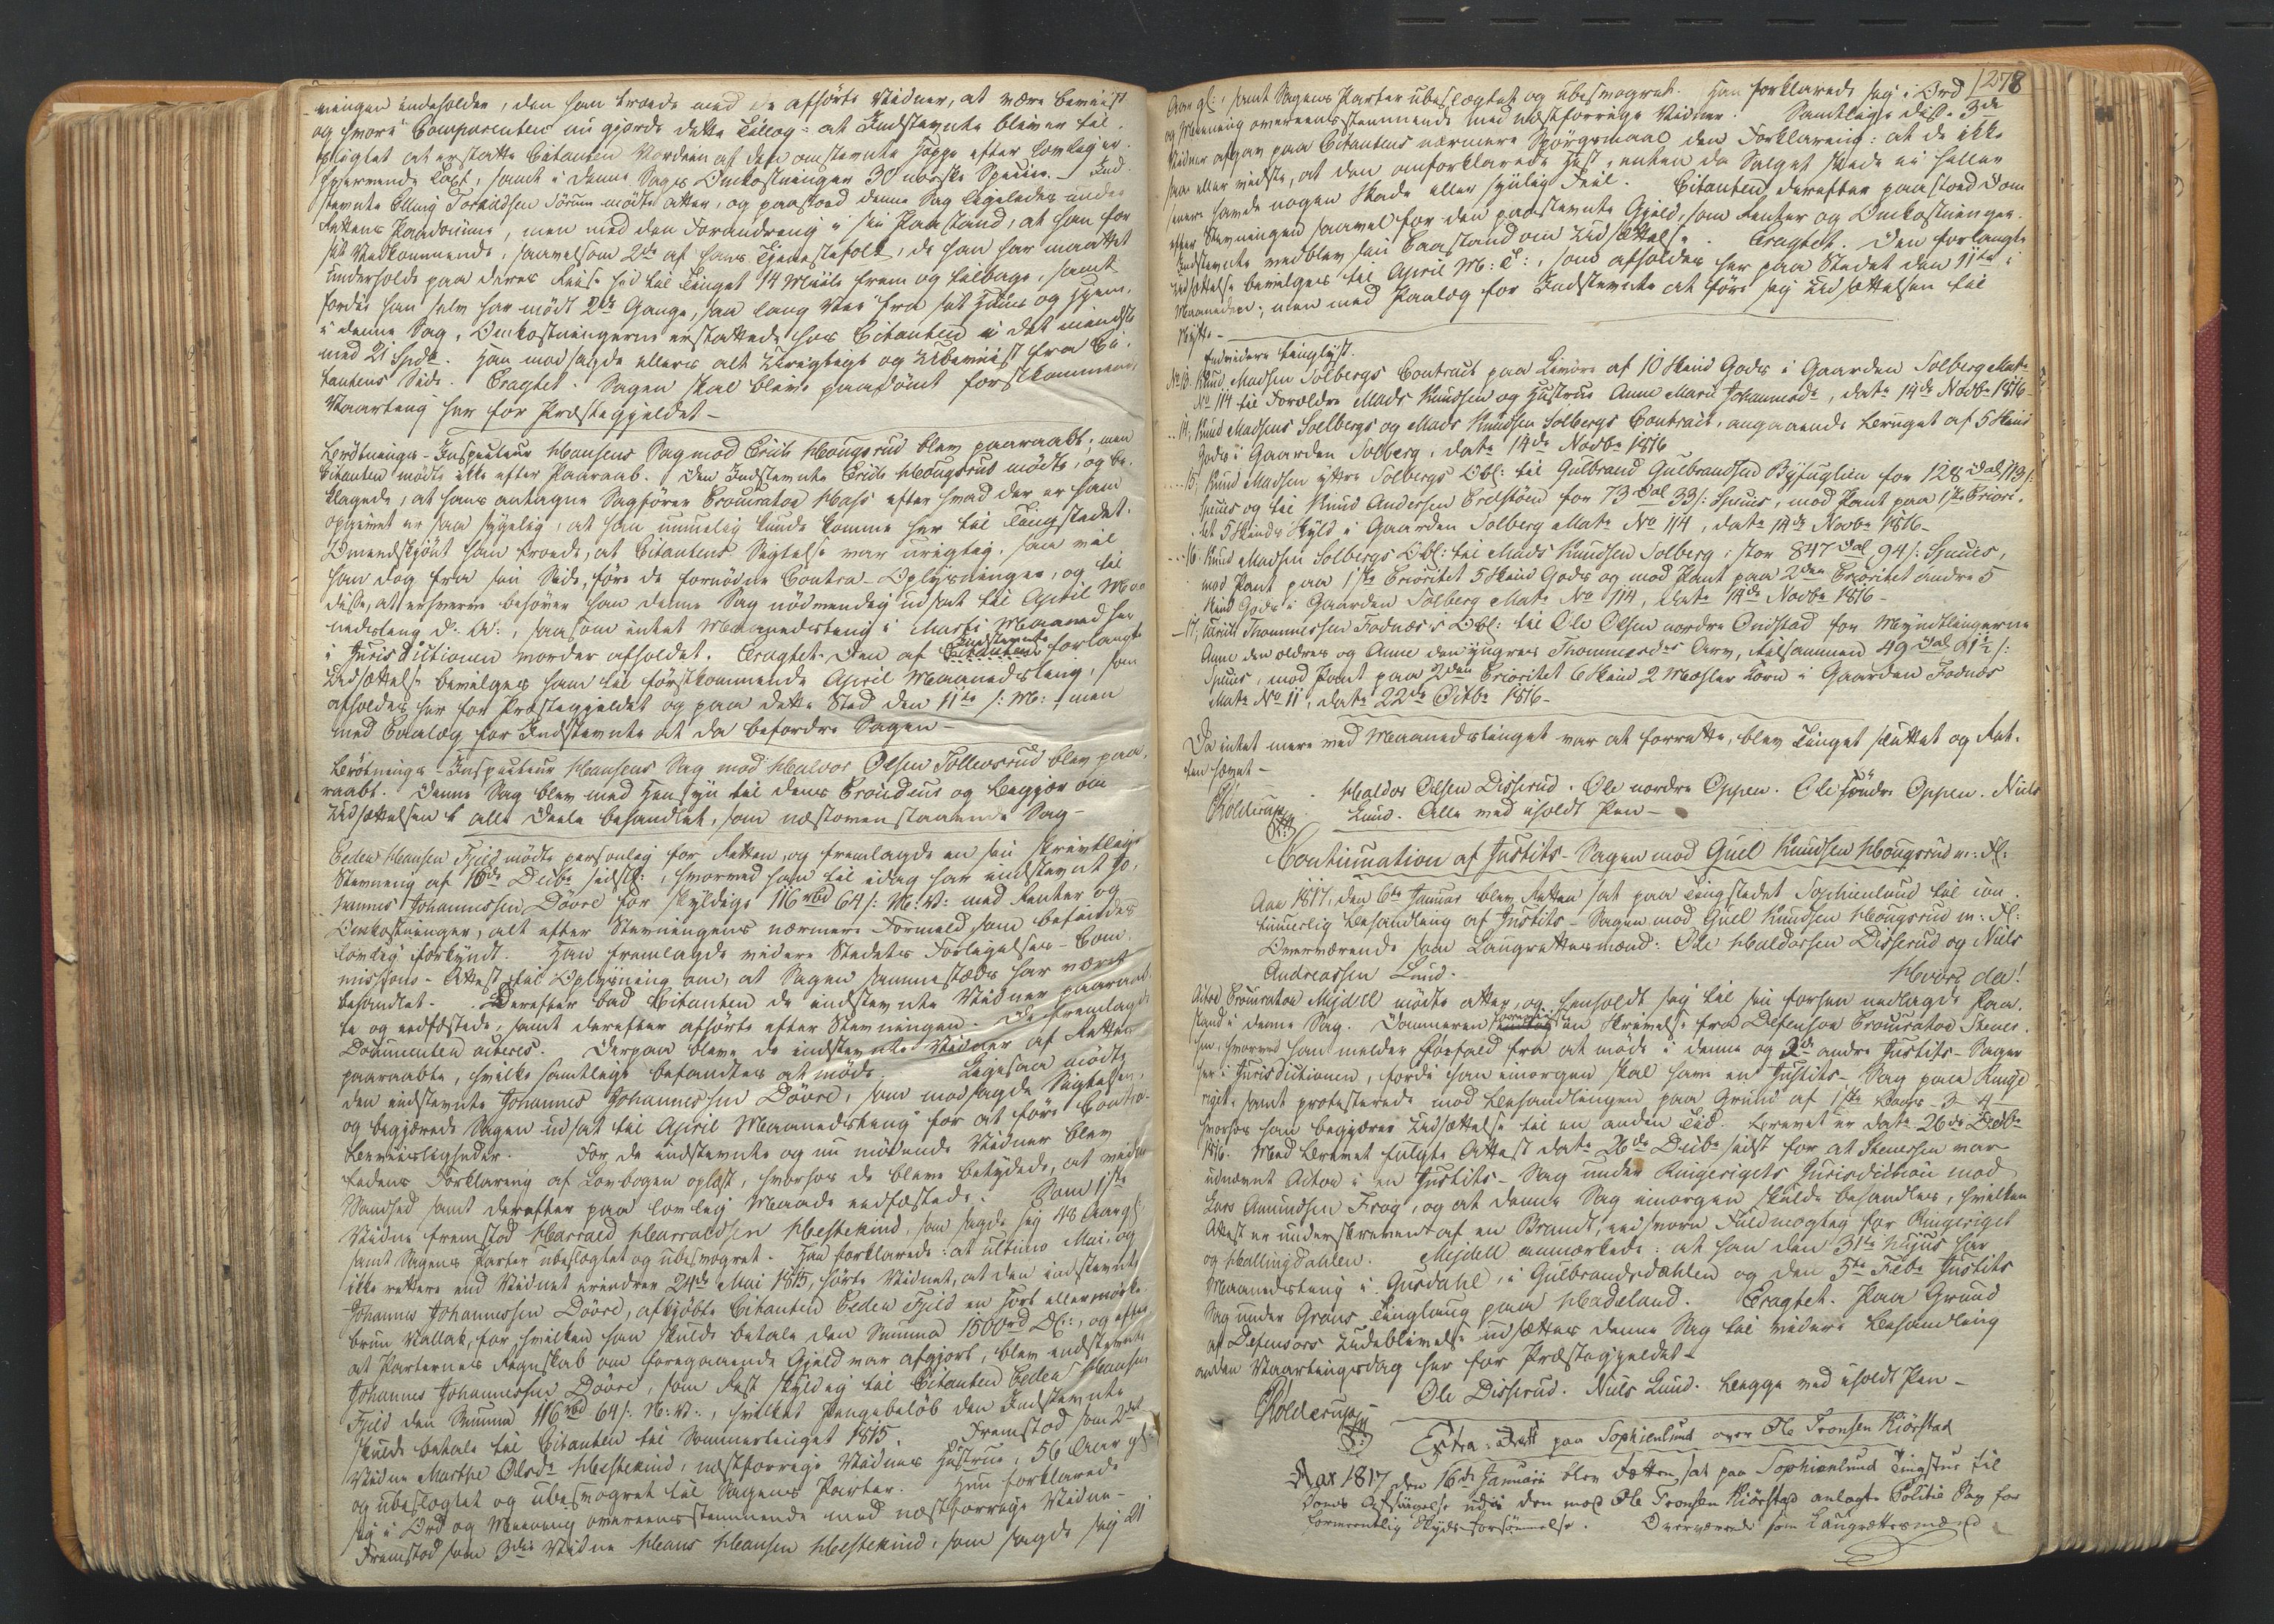 ningen indeholder, den han troede med de afhörte Vidner, at være beviist
og hvori Comparenten nu gjorde dette Tillæg: at Indstevnte bliver til-
pligtet at erstatte Citanten Værdien af den omstevnte Hoppe efter lovlig er-
hvervende Taxt, samt i denne Sags Omkostninger 30 norske Species. Ind-
stevnte Elling Torkildsen Sörum mödte atter, og paastoed denne Sag ligeledes under
Rettens Paadömme, men med den Forandring i sin Paastand, at han for
sit Vedkommende, saavelsom 2de af hans Tjenestefolk, de han har maattet
underholde paa deres Reise hid til Tinget 14 Miile frem og tilbage, samt
fordi han selv har mödt 2de Gange, saa lang Vei fra sit Huus og Hjem,
i denne Sag, Omkostningerne erstattede hos Citanten i det mindste
med 21 Spd. Han modsagde ellers alt Urigtigt og Ubeviist fra Ci-
tantens Side. Eragtet: Sagen skal blive paadömt förstkommende
Vaarting her for Præstegjeldet -
Lerötnings-Inspecteur Hansens Sag mod Erich Hougsrud blev paaraabt, men
Citanten mödte ikke efter Paaraab. Den Indstevnte Erich Hougsrud mödte, og be-
klagede, at hans antagne Sagförer Procurator Hass efter hvad der er ham
opgivet er saa sygelig, at han umuelig kunde komme her til Tingstedet.
Omendskjönt han troede, at Citantens Sigtelse var urigtig, saa vil
han dog fra sin Side, före de fornödne Contra-Oplysninger, og til
disse, at erhverve behöver han denne Sag nödvendig udsat til April Maa-
nedsting d: A:, saasom intet Maanedsting i Martz Maaned her
i Jurisdictionen vorder afholdet. Eragtet. Den af Indstevnte forlangte
Udsættelse bevilges ham til förstkommende April Maanedsting, som
afholdes her for Præstegjeldet og paa dette Sted den 11te s: M:, men
med Paalæg for Indstevnte at da befordre Sagen -
Lerötnings-Inspecteur Hansens Sag mod Halvor Olsen Tollevsrud blev paa-
raabt. Denne Sag blev med Hensyn til dens Producu og Begjær om
Udsættelsen i alle Deele behandlet, som næstovenstaaende Sag -
Peder Hansen Fjeld mödte personlig for Retten, og fremlagde en sin skrivtlige
Stevning af 16de Decbr sidstl:, hvorved han til idag har indstevnt Jo-
hannes Johannessen Dövre for skyldige 116 rbd 64 s: N: V: med Renter og
Omkostninger, alt efter Stevningens nærmere Formeld som befindes
lovlig forkyndt. Han fremlagde videre Stedets Forligelses-Com-
missions-Attest til Oplysning om, at Sagen sammesteds har været
behandlet. Derefter bad Citanten de indstevnte Vidner paaraab-
te og eedfæstede, samt derefter afhörte efter Stevningen. De fremlagte
Documenten acteres. Derpaa bleve de indstevnte Vidner af Retten
paaraabte, hvilke samtlige befandtes at möde. Ligesaa mödte
den indstevnte Johannes Johannessen Dövre, som modsagde Sigtelsen,
og begjærede Sagen udsat til April Maanedsting for at före Contra-
Beviisligheder. For de indstevnte og nu mödende Vidner blev
Eedens Forklaring af Lovbogen oplæst, hvorhos de bleve betydede, at vidne
Sandhed samt derefter paa lovlig Maade eedfæstede. Som 1ste
Vidne fremstod Harrald Harraldsen Hestekind, som sagde sig 48 Aar gl:
samt Sagens Parter ubeslægtet og ubesvogret. Han forklarede: at ultimo Mai, og
ikke rettere end Vidnet erindrer 24de Mai 1815, hörte Vidnet, at den indstevnte
Johannes Johannessen Dövre, afkjöbte Citanten Peder Fjeld en sort eller mörke-
brun Vallak, for hvilken han skulde betale den Summa 1500 rd Dl:, og efter
at Parternes Regnskab om foregaaende Gjeld var afgjort, blev indstevnte
Johannes Johannessen Dövre, som Rest skyldig til Citanten Peder Hansen
Fjeld den Summa 116 rbd 64 s: N: V:, hvilket Pengebelöb den Indstevnte
skulde betale til Citanten til Sommertinget 1815. Fremstod som 2det
Vidne Marthe Olsdr Hestekind, næstforrige Vidnes Hustrue, 56 Aar gl:
og ubeslægtet og ubesvogret til Sagens Parter. Hun forklarede
sig i Ord og Meening overeensstemmende med næstforrige Vidne -
Fremstod som 3die Vidne Hans Hansen Hestekind, som sagde sig 21
278
Aar gl:, samt Sagens Parter ubeslægtet og ubesvogret. Han forklarede sig i Ord
og Meening overeensstemmende med næstforrige Vidner. Samtlige disse 3de
Vidner afgav paa Citantens nærmere Spörgsmaal den Forklaring: at de ikke
saae eller vidste, at den omforklarede Hest, enten da Salget skede ei heller
senere havde nogen Skade eller synlig Feil. Citanten derefter paastoed Dom
efter Stevningen saavel for den paastevnte Gjeld, som Renter og Omkostninger.
Indstevnte vedblev sin Paastand om Udsættelse. Eragtet. Den forlangte
Udsættelse bevilges til April M: T:, som afholdes her paa Stedet den 11te i
Maaneden; men med Paalæg for Indstevnte at före sig Udsættelsen til
Nytte -
Endvidere tinglyst.
No 13. Knud Madsen Solbergs Contract paa Livöre af 10 Skind Gods i Gaarden Solberg Matr
No 114 til Forældre Mads Knudsen og Hustrue Anne Marie Johannesdr, datr 14de Novbr 1816 -
.. 14. Knud Madsens Soelbergs og Mads Knudsen Solbergs Contract, angaaende Bruget af 5 Skind
Gods i Gaarden Solberg, datr 14de Novbr 1816
.... 15. Knud Madsen yttre Solbergs Obl: til Gulbrand Gulbrandsen Byfuglien for 128 Dal 113 s:
Species og til Knud Andersen Brelstöen for 73 Dal 33 s: Species, mod Pant paa 1ste Priori-
tet 5 Skinds Skyld i Gaarden Solberg Matr No 114, datr 14de Novbr 1816 -
... 16. Knud Madsen Solbergs Obl: til Mads Knudsen Solberg, stor 847 Dal 94 s: Species,
mod Pant paa 1ste Prioritet 5 Skind Gods og mod Pant paa 2den Prioritet andre 5
Skind Gods i Gaarden Solberg Matr No 114, datr 14de Novbr 1816 -
- 17. Erich Thommessen Fodnæs's Obl: til Ole Olsen nordre Ondstad for Myndlingerne
Anne den ældres og Anne den yngres Thommesdrs Arv, tilsammen 49 Dal 91½ s:
Species, mod Pant paa 2den Prioritet 6 Skind 2 Mæhler Korn i Gaarden Fodnæs
Matr No 11, datr 22de Octbr 1816 -
Da intet mere ved Maanedstinget var at forrette, blev Tinget sluttet og Ret-
ten hævet -
Haldor Olsen Disserud. Ole nordre Oppen. Ole söndre Oppen. Niels
Kolderup
Lund. Alle med iholdt Pen -
Continuation af Justits-Sagen mod Guel Knudsen Hougsrud m: Fl:
Aar 1817, den 6te Januar blev Retten sat paa Tingstedet Sophienlund til con-
tinuerlig Behandling af Justits-Sagen mod Guel Knudsen Hougsrud m: Fl:
Overværende som Laugrettesmænd: Ole Haldorsen Disserud og Niels
Andreassen Lund.
Hvor da!
Actor Procurator Mejdell mödte atter, og henholdt sig til sin forhen nedlagde Paa-
stand i denne Sag. Dommeren en Skrivelse fra Defensor Procurator Stener-
sen, hvorved han melder Forfald fra at möde i denne og 2de andre Justits-Sager
her i Jurisdictionen, fordi han imorgen skal have en Justits-Sag paa Ringe
riget, samt protesterede mod Behandlingen paa Grund af 1ste Bogs
hvorhos han begjærer Udsættelse til en anden Tid. Brevet er datr 26de Decbr
1816. Med Brevet fulgte Attest datr 26de Decbr sidst for at Stenersen var
udnævnt Actor i en Justits-Sag under Ringerigets Jurisdiction mod
Lars Amundsen Frog, og at denne Sag imorgen skulde behandles, hvilken
Attest er underskrevet af en Brandt, eedsvoren Fuldmægtig for Ringeriget
og Hallingdahlen. Mejdell anmærkede: at han den 31te hujus har
Maanedsting i Gusdahl, i Gulbrandsdahlen og den 5te Febr Justits
Sag under Grans Tinglaug paa Hadeland. Eragtet. Paa Grund
af Defensors Udeblivelse udsættes denne Sag til videre Behandling
anden Vaartingsdag her for Præstegjeldet -
Ole Disserud. Niels Lund. Begge med iholdt Pen -
Kolderup
Extra-Rett paa Sophienlund over Ole Tronsen Kiörstad
Aar 1817 den 16de Januarii blev Retten sat paa Sophienlund Tingstue til
Doms Afsigelse udi den mod Ole Tronsen Kiörstad anlagte Politie Sag for
formeentlig Skyds-Forsömmelse. Overværende som Laugrettesmænd